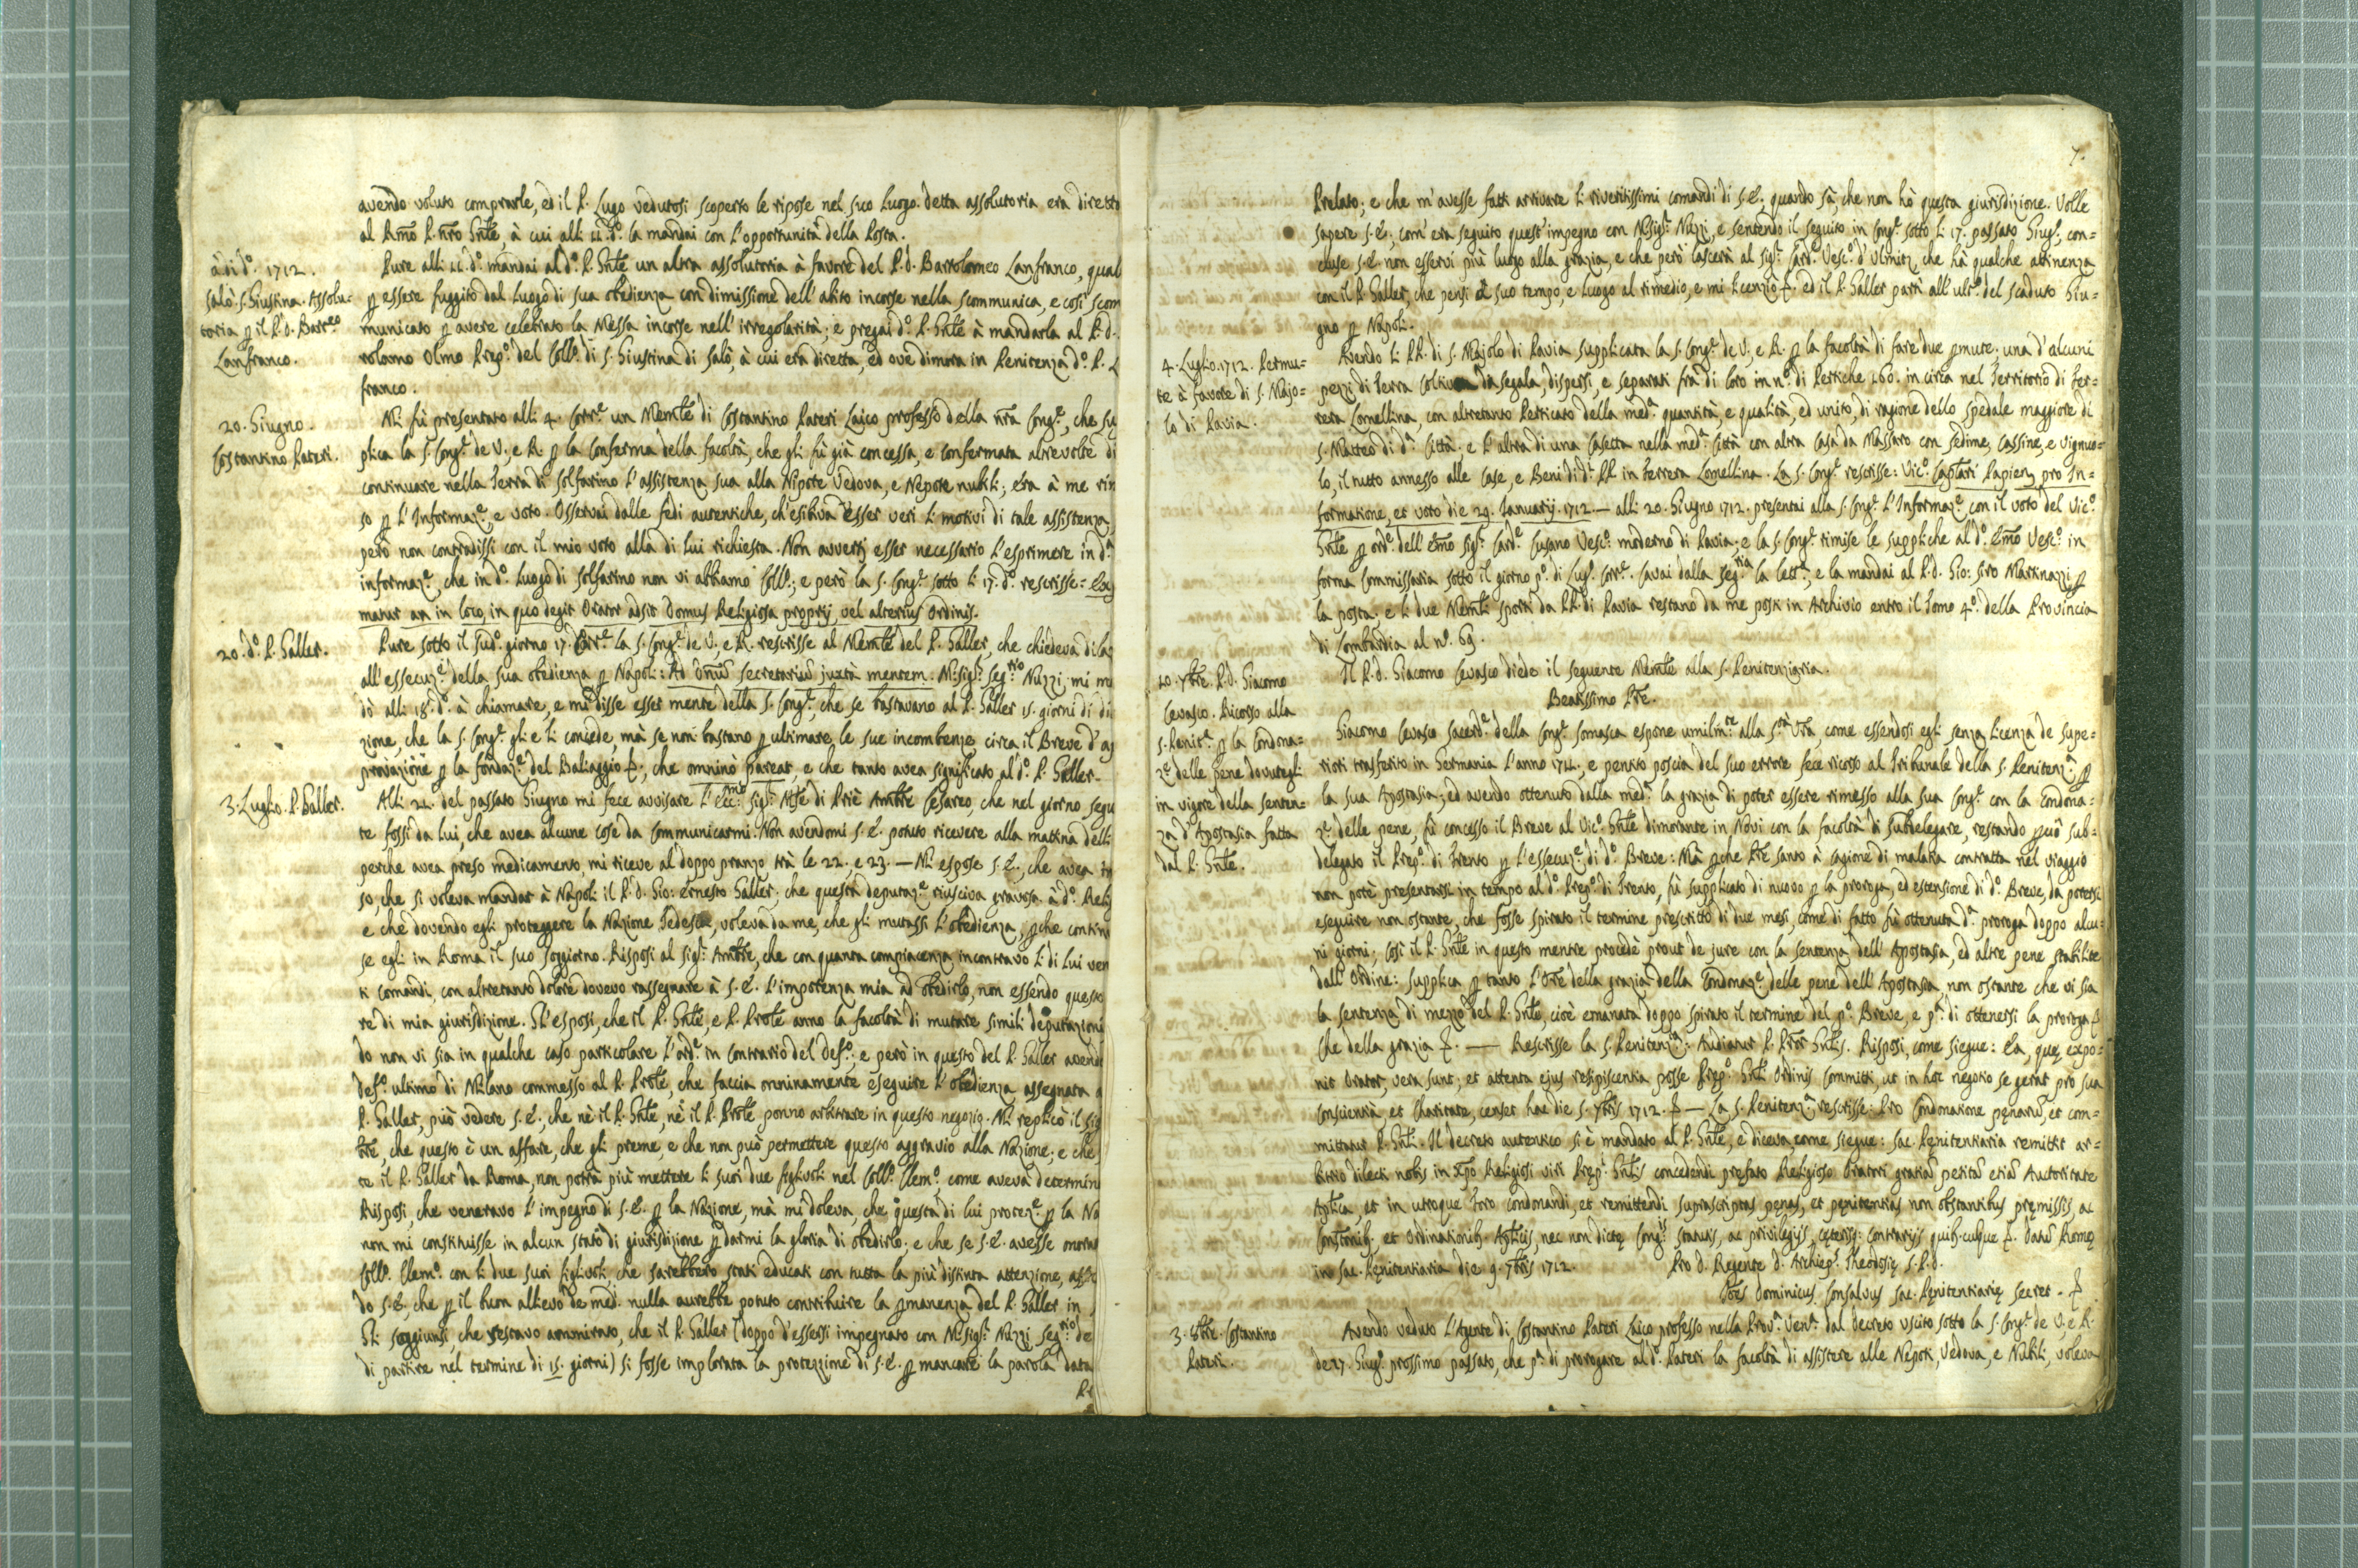 avendo voluto comprarle, ed il P. Lugo vedutosi scoperto le ripose nel suo luogo. detta assolutoria era diretta
al Rmo P. nro Gnle, à cui alli 11. do. la mandai con l'opportunità della Posta.
à dì do. 1712.
Salò. S. Giustina. Assolu-
toria p il P. D. Barteo
Lanfranco.
Pure alli 11. do. mandai al do. P. Gnle un altra assolutoria à favore del P. D. Bartolomeo Lanfranco, qual
p essere fuggito dal luogo di sua obedienza con dimissione dell'abito incorse nella scommunica, e così scom
municato p avere celebrato la Messa incorse nell'irregolarità; e pregai do. P. Gnle à mandarla al P. D.
rolamo Olmo Prepo. del Collo. di S. Giustina di Salò, à cui era diretta, ed ove dimora in Penitenza do. P. L
franco.
20. Giugno.
Costantino Pateri.
Mi fù presentato alli 4. Corre un Memle di Costantino Pateri Laico professo della nra Conge, che su
plica la S. Conge de V. e R. p la conferma della facoltà, che gli fù già concessa, e confermata altrevolte di
continuare nella Terra di Solfarino l'assistenza sua alla Nipote Vedova, e Nepote nubili; era à me rim
so p l'Informaze, e voto. Osservai dalle fedi autentiche, ch'esibiva esser veri li motivi di tale assistenza,
però non contradissi con il mio voto alla di lui richiesta. Non avvertj esser necessario l'esprimere in da
informaze, che in do. luogo di Solfarino non vi abbiamo Collo.; e però la S. Conge sotto li 17. do. rescrisse=
matur an in loco, in quo degit Orator adsit Domus Religiosa proprij, vel alterius Ordinis.
20. do. P. Galler.
Pure sotto il sudo. giorno 17. Corre la S. Conge de V. e R. rescrisse al Memle del P. Galler, che chiedeva dila
all'essecuze della sua obedienza p Napoli: Ad Dnum Secretarium juxtà mentem. Msigr Segrio Nuzzi, mi m
dò alli 18. do. à chiamare, e mi disse esser mente della S. Conge, che se bastavano al P. Galler 15. giorni di di
zione, che la S. Conge gli e li concede, mà se non bastano p ultimare le sue incombenze circa il Breve d'a
provazione p la fondaze del Baliaggio &, che omninò pareat, e che tanto avea significato al do. P. Galler.
3. Luglio. P. Galler.
Alli 21. del passato Giugno mi fece avvisare l'Eccmo Sigr Mse di Priè Ambre Cesareo, che nel giorno segu
te fossi da lui, che avea alcune cose da communicarmi. Non avendomi S. E. potuto ricevere alla mattina delli
perche avea preso medicamento, mi riceve al doppo pranzo trà le 22. e 23. — Mi espose S. E., che avea in
so, che si voleva mandar à Napoli il P. D. Gio: Ernesto Galler; che questa deputaze riusciva gravosa à do. Relig
e che dovendo egli proteggere la Nazione Tedesca, voleva da me, che gli mutassi l'obedienza, pche contin
se egli in Roma il suo soggiorno. Risposi al Sigr Ambre, che con quanta compiacenza incontravo li di lui ven
ti comandi, con altretanto dolore dovevo rassegnare à S. E. l'impotenza mia ad obedirlo, non essendo questo
re di mia giurisdizione. Gl'esposi, che il P. Gnle, e P. Prole anno la facoltà di mutare simili deputazioni
do non vi sia in qualche caso particolare l'orde in contrario del Defo.; e però in questo del P. Galler avend
Defo. ultimo di Milano commesso al P. Prole, che faccia onninamente eseguire l'obedienza assegnata a
P. Galler, può vedere S. E., che nè il P. Gnle, nè il P. Prole ponno arbitrare in questo negozio. Mi replicò il sig
bre, che questo è un affare, che gli preme, e che non può permettere questo aggravio alla Nazione; e che
te il P. Galler da Roma, non potrà più mettere li suoi due figliuoli nel Collo. Clemo. come aveva determin
Risposi, che veneravo l'impegno di S. E. p la Nazione, mà mi doleva, che questa di lui proteze p la Na
non mi constituisse in alcun stato di giurisdizione p darmi la gloria di obedirlo; e che se S. E. avesse onora
Collo. Clemo. con li due suoi figliuoli, che sarebbero stati educati con tutta la più distinta attenzione, assic
do S. E., che p il buon allievo de med. nulla aurebbe potuto contribuire la pmanenza del P. Galler in
Gli soggiunsi, che restavo ammirato, che il P. Galler (doppo d'essersi impegnato con Msigr Nuzzi Segrio de
di partire nel termine di 15. giorni) si fosse implorata la protezzione di S. E. p mancare la parola data
Pr
7.
Prelato; e che m'avesse fatti arrivare li riveritissimi comandi di S. E., quando sà, che non hò questa giurisdizione. Volle
sapere S. E., com'era seguito quest'impegno con Msigr Nuzzi, e sentendo il seguito in Conge sotto li 17. passato Giugo, con-
cluse S. E. non esservi più luogo alla grazia, e che però lascerà al Sigr Card. Vesco. d'Olmitz, che hà qualche attinenza
con il P. Galler, che pensi à suo tempo, e luogo al rimedio, e mi licenziò &. ed il P. Galler partì all'ulto. del scaduto Giu-
gno p Napoli.
4. Luglio. 1712. Permu-
te à favore di S. Majo-
lo di Pavia.
Avendo li PP. di S. Majolo di Pavia supplicata la S. Conge de V. e R. p la facoltà di fare due pmute; una d'alcuni
pezzi di terra coltiva da segala, dispersi, e separati frà di loro in no. di Pertiche 160. in circa nel Territorio di Fer-
rera Lomellina, con altretanto Perticato della meda quantità, e qualità, ed unito, di ragione dello Spedale maggiore di
S. Matteo di da Città, e l'altra di una Casetta nella meda Città con altra Casa da Massaro con sedime, Cassine, e Vignuo-
lo, il tutto annesso alle Case, e Beni di di PP. in Ferrera Lomellina. La S. Conge rescrisse: Vico. Caplari Papien pro In-
formatione, et voto die 29. Januarij. 1712. — alli 20. Giugno 1712. presentai alla S. Conge l'Informaze con il voto del Vico.
Gnle p orde dell'Emo Sigr Carde Cusano Vesco. moderno di Pavia; e la S. Conge rimise le suppliche al do. Emo Vesco. in
forma Commissaria sotto il giorno po. di Lugo. Corre. Cavai dalla Segria la letta, e la mandai al P. D. Gio: Siro Martinazzi p
la posta; e li due Memli sporti da PP. di Pavia restano da me posti in Archivio entro il Tomo 4o. della Provincia
di Lombardia al no. 69.
10. 7bre. P. D. Giacomo
Cevasco. Ricorso alla
S. Penita p la Condona-
ze delle pene dovutegli
in vigore della senten-
za d'Apostasia fatta
dal P. Gnle.
Il P. D. Giacomo Cevasco diede il seguente Memle alla S. Penitenziaria.
Beatissimo Pre.
Giacomo Cevasco Sacerde della Conge Somasca espone umilmte alla Stà Vra, come essendosi egli senza licenza de supe-
riori trasferito in Germania l'anno 1711, e pentito poscia del suo errore fece ricorso al Tribunale della S. Penitenza p
la sua Apostasia; ed avendo ottenuto dalla meda la grazia di poter essere rimesso alla sua Conge con la Condona-
ze delle pene, fù concesso il Breve al Vico. Gnle dimorante in Novi con la facoltà di subdelegare, restando pciò sub-
delegato il Prepo. di Trento p l'essecuze di do. Breve: Mà pche Pre Santo à cagione di malatia contratta nel viaggio
non potè presentarsi in tempo al do. Prepo. di Trento, fù supplicato di nuovo p la proroga, ed estensione di do. Breve, da potersi
eseguire non ostante, che fosse spirato il termine prescritto di due mesi, come di fatto fù ottenuta da proroga doppo alcu-
ni giorni; così il P. Gnle in questo mentre procedè prout de jure con la sentenza dell'Apostasia, ed altre pene stabilite
dall'Ordine: Supplica p tanto l'Ore della grazia della Condonaze delle pene dell'Apostasia, non ostante che vi sia
la sentenza di mezzo del P. Gnle, cioè emanata doppo spirato il termine del po. Breve, e pa. di ottenersi la proroga &
Che della grazia &. — Rescrisse la S. Penitenza: Audiatur P. Pror Gnlis. Risposi, come siegue: Ea, quę expo-
nit Orator, vera sunt; et attenta ejus resipiscentia posse Prępo Gnli Ordinis committi, ut in hoc negotio se gerat pro sua
conscientia, et Charitate, censet hac die 5. 7bris 1712. & — La S. Penitenza rescrisse: Pro Condonatione pęnarum, et com-
mittatur P. Gnli. Il decreto autentico si è mandato al P. Gnle, e diceva, come siegue: Sac. Pęnitentiaria remittit ar-
bitrio dilecti nobis in Xpo Religiosi viri Pręp. Gnlis concedendi prefato Religioso Oratori gratiam petitam etiam Autoritate
Aplica, et in utroque Foro condonandi, et remittendi suprascriptas pęnas, et pęnitentias non obstantibus pręmissis, ac
Constonib. et Ordinationib. Aplicis, nec non dictę Congis statutis, ac privilegijs, cęterisq: contrarijs quib.cumque &. Datum Romę
in Sac. Pęnitentiaria die 9. 7bris 1712. Pro D. Regente D. Archiepo Theodosię S. P. D.
Joes Dominicus Consalvus Sac. Pęnitentiarię Secret. &
3. 8bre. Costantino
Pateri.
Avendo veduto l'Agente di Costantino Pateri Laico professo nella Prova Vena. dal decreto uscito sotto la S. Conge de V. e R.
de 17. Giugo. prossimo passato, che pa di prorogare al do. Pateri la facoltà di assistere alle Nepoti, Vedova, e Nubili, voleva